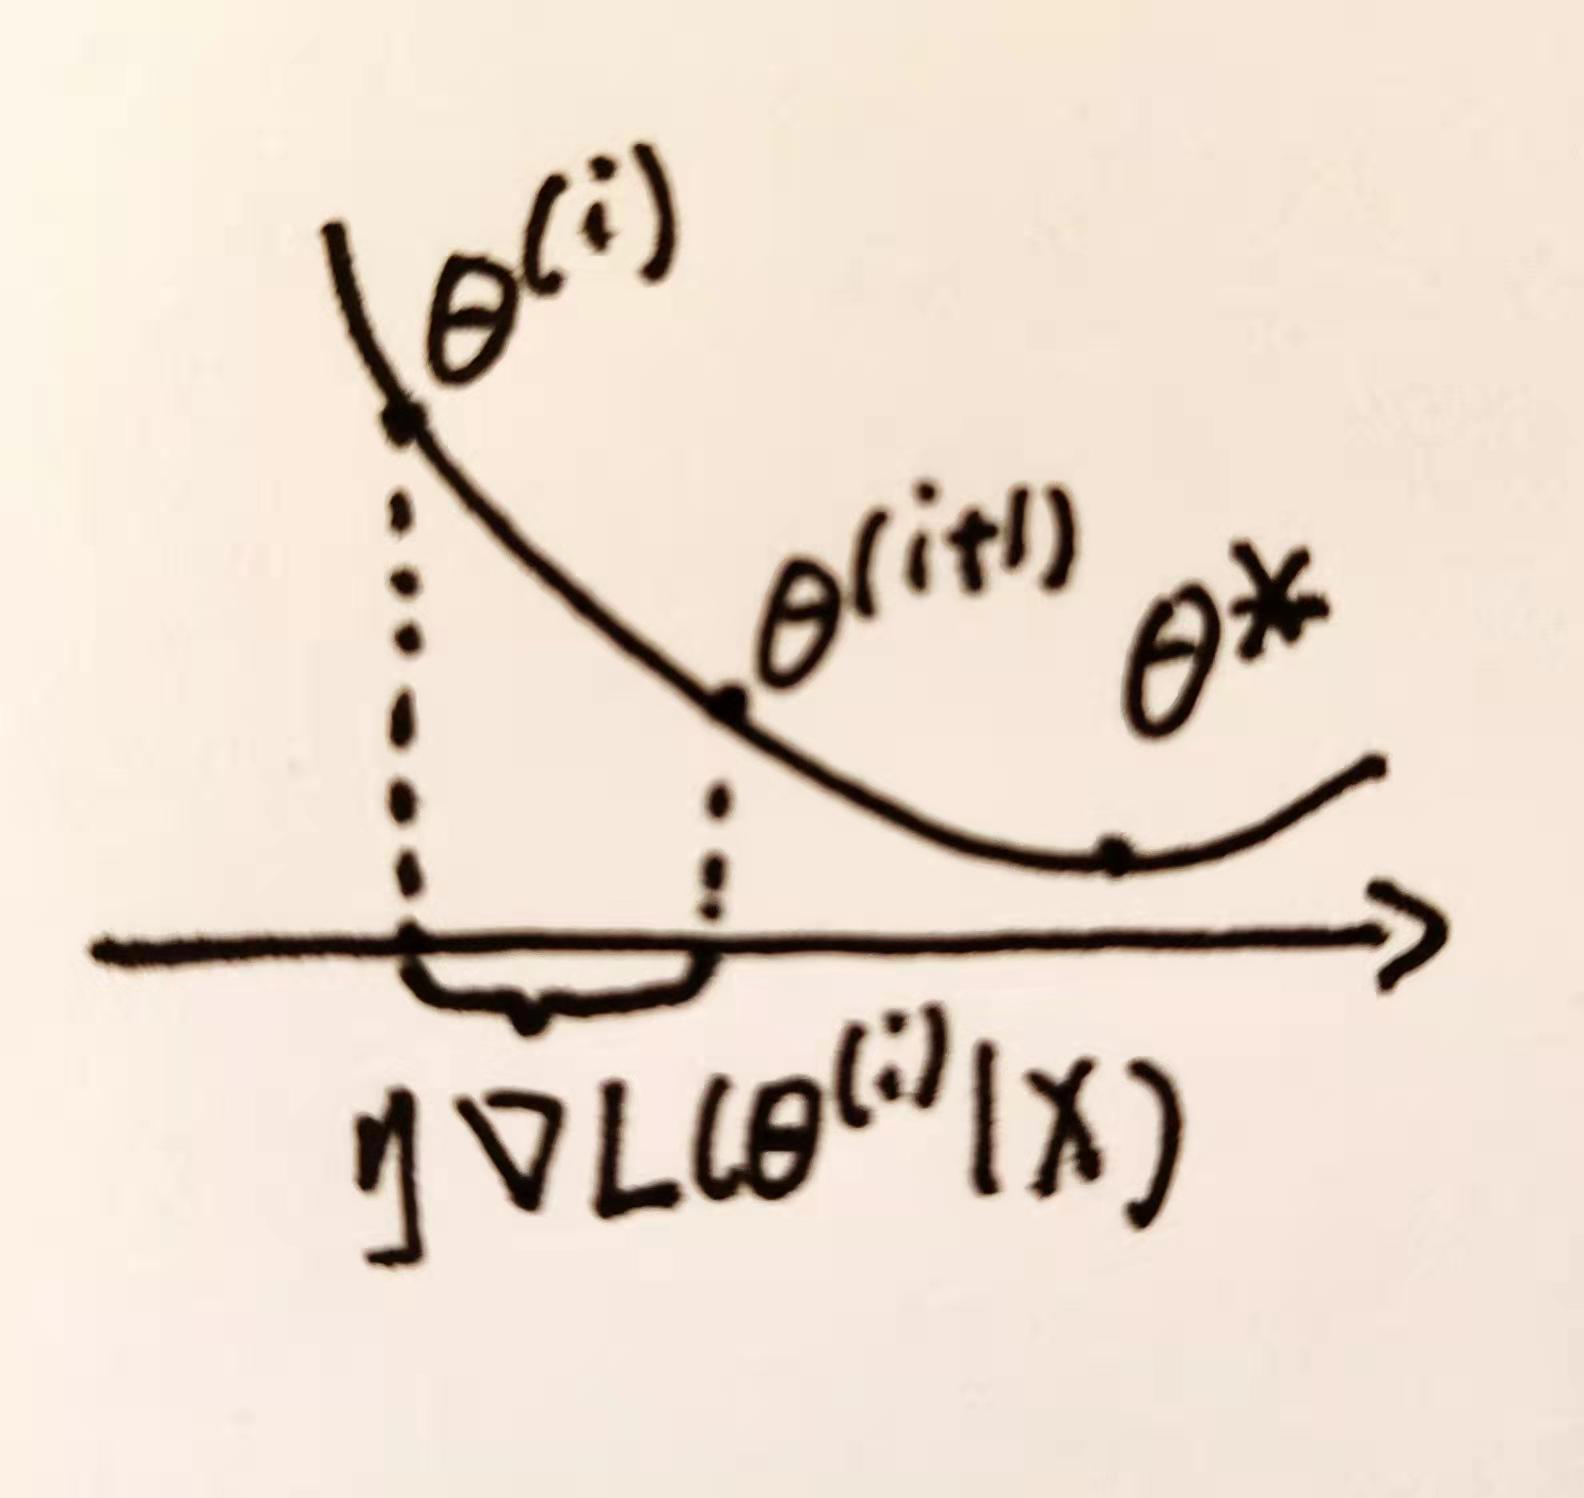 θ^(i)
θ^(i+1)
θ*
η∇L(θ^(i)|X)